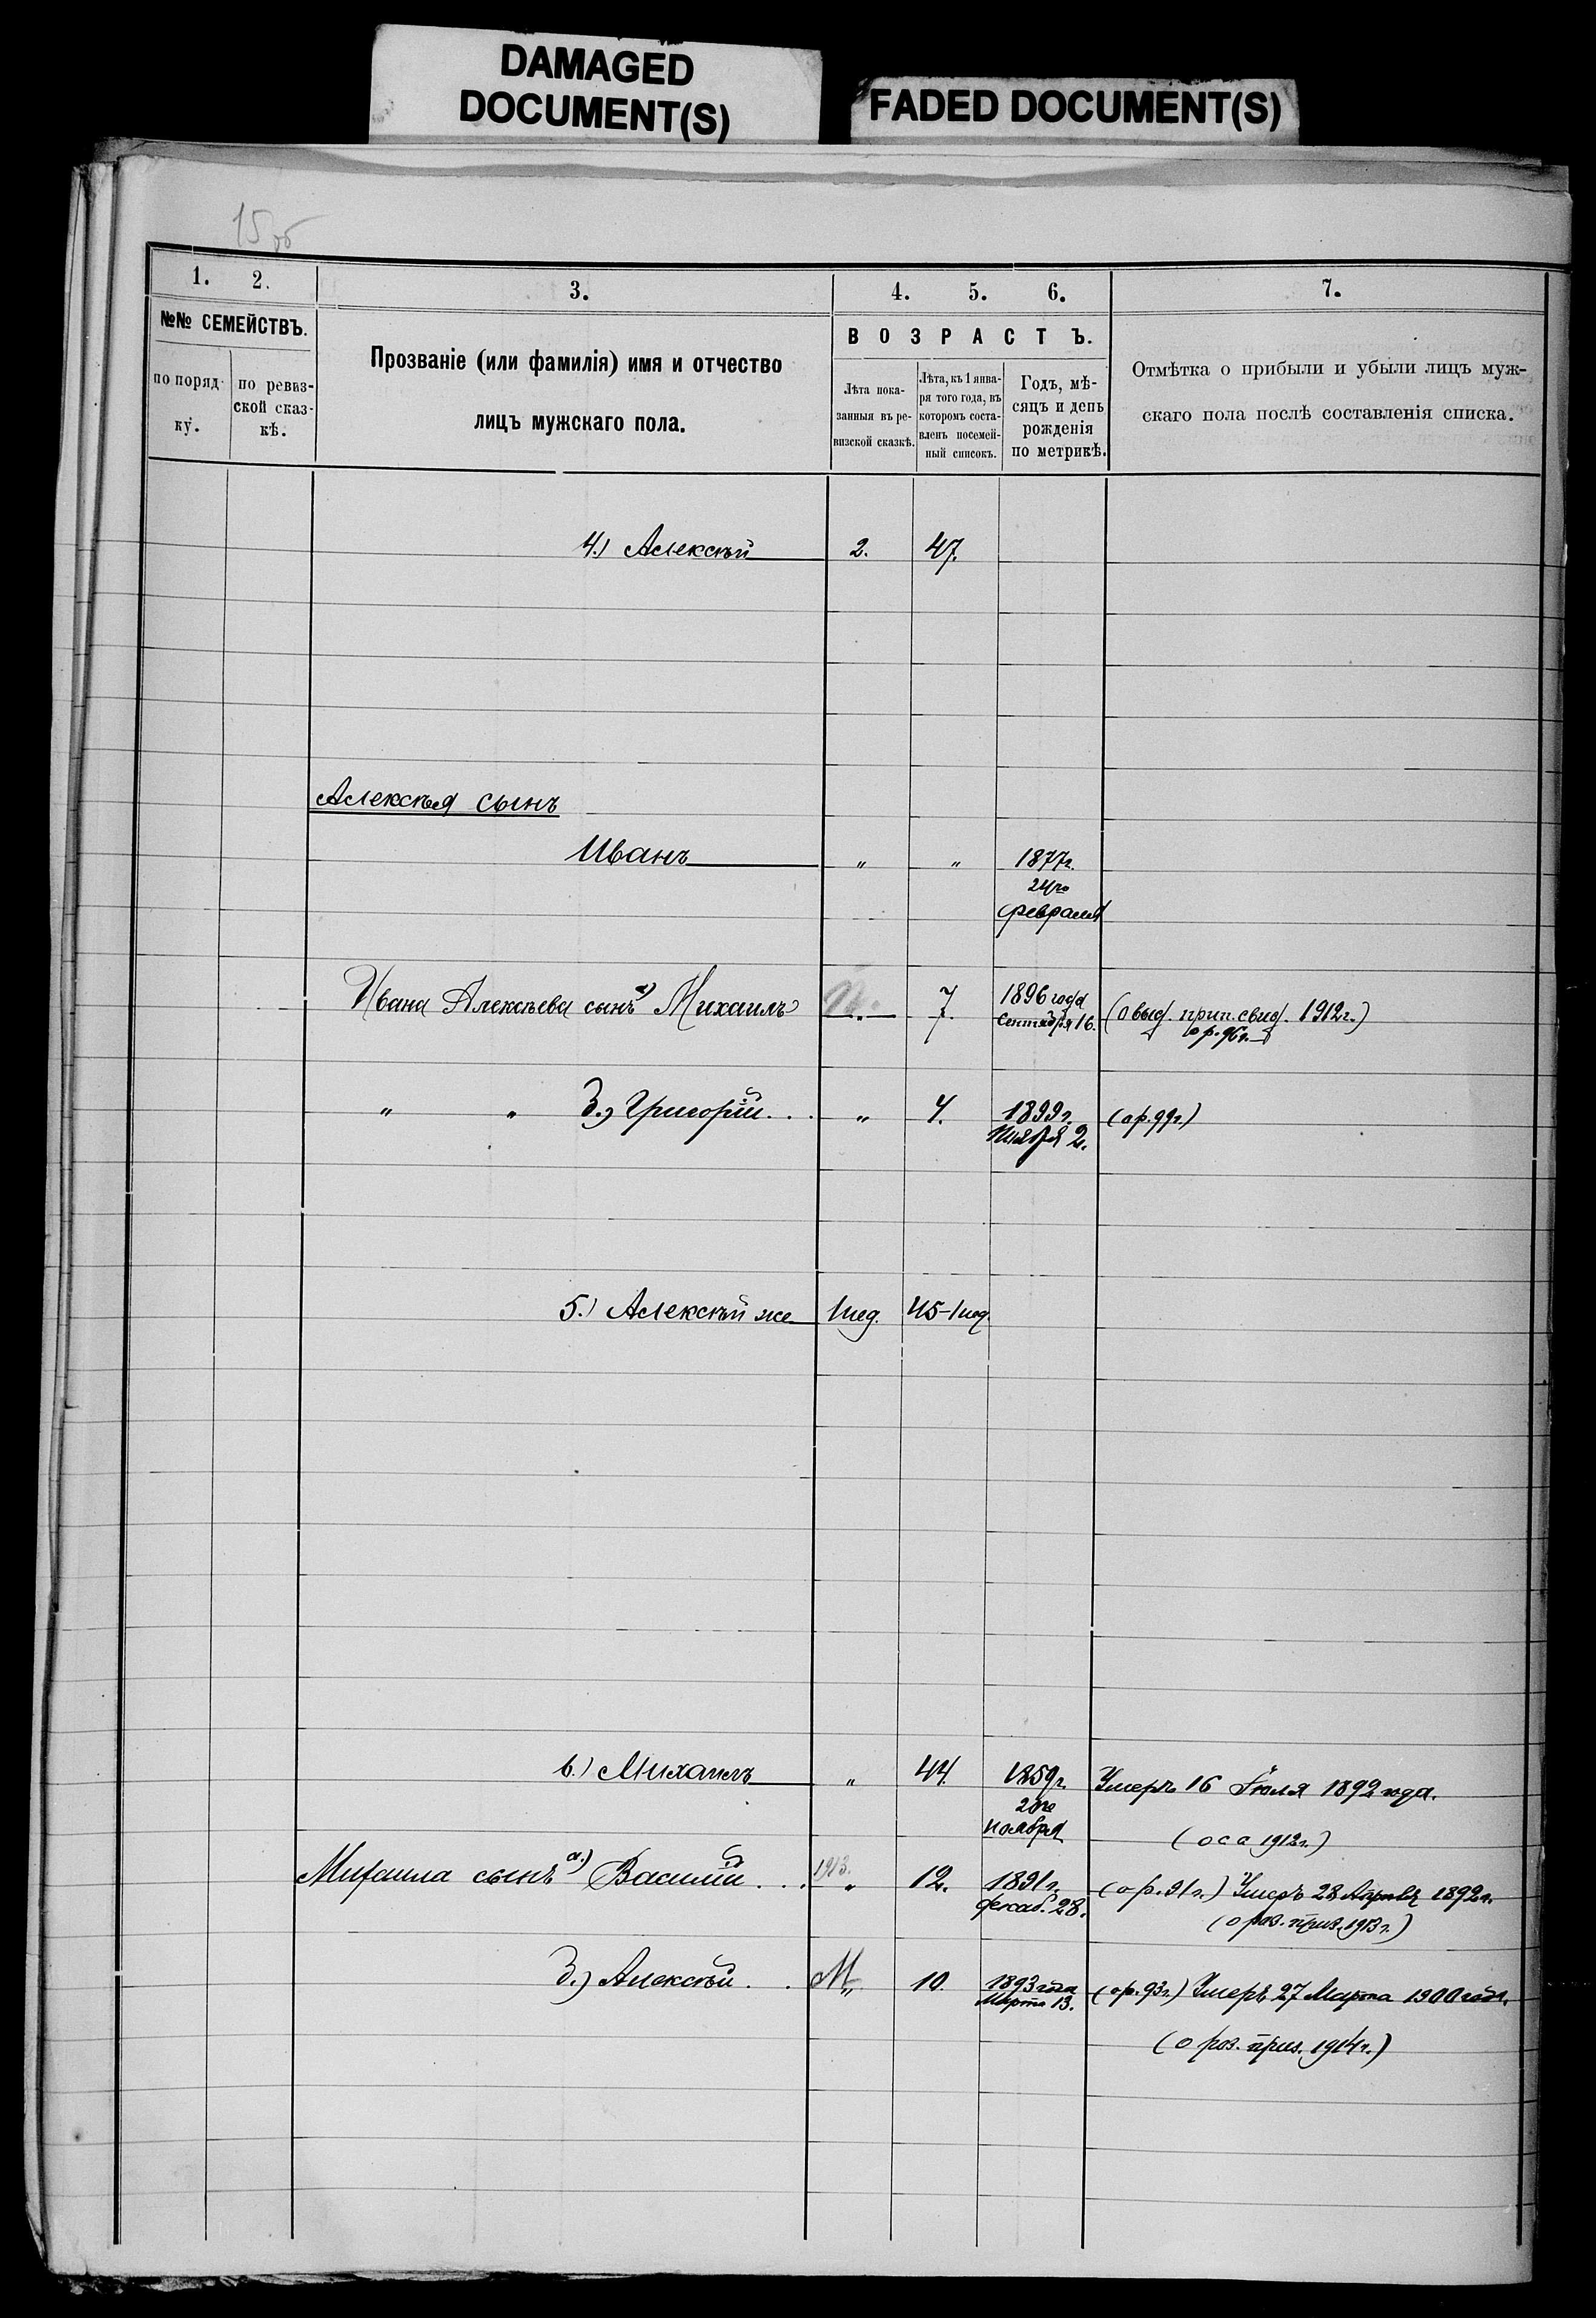 DAMAGED
DOCUMENT(S)
FADED DOCUMENT(S)
15 об
1. 2. 3. 4. 5. 6. 7.
№№ СЕМЕЙСТВЪ.
по порядку.
по ревизской сказкѣ.
Прозваніе (или фамилія) имя и отчество
лицъ мужскаго пола.
ВОЗРАСТЪ.
Лѣта показанныя въ ревизской сказкѣ.
Лѣта, къ 1 января того года, въ которомъ составленъ посемейный списокъ.
Годъ, мѣсяцъ и день рожденія по метрикѣ.
Отмѣтка о прибыли и убыли лицъ мужскаго пола послѣ составленія списка.
4.) Алексѣй 2. 47.
Алексѣя сынъ
Иванъ " " 1877г.
24го
февраля
Ивана Алексѣева сынъ а) Михаилъ 7. 1896 года (О выд. прип. свид. 1912г.)
7. Сентября 16. о р. 96г.
" " Григорій " 4. 1899г. (о р. 99г.)
2.
5.) Алексѣй же 1 нед. 45-1 нед.
6.) Михаилъ " 44. 1859г. Умеръ 16 Іюля 1892 года.
ноября
(о с а 1912г.)
Михаила сынъ а.) Василій 1913. " 12. 1891г. (о р. 91г.) Умеръ 28 Апрѣля 1892г.
декаб. 28.
(о роз. приз. 1913г.)
Алексѣй М " 10. 1893 года (о р. 93г.) Умеръ 27 Марта 1900 года.
Марта 13.
(о роз. приз. 1914г.)